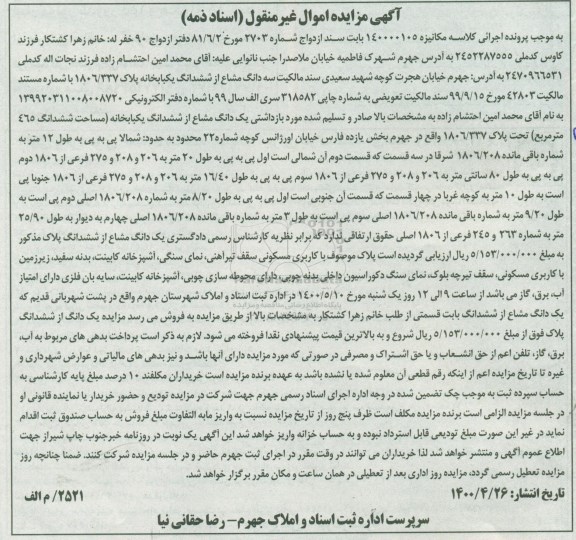 آگهی مزایده اموال غیر منقول (اسناد ذمه)
به موجب پرونده اجرائی کلاسه مکانیزه ۱۴۰۰۰۰۱۰۵ بابت سند ازدواج شماره ۲۷۰۳ مورخ ۸۱/۶/۲ دفتر ازدواج ۹۰ خفر له: خانم زهرا کشتکار فرزند
کاوس کدملی ۲۴۵۲۲۸۷۵۵۵ به آدرس جهرم شهرک فاطمیه خیابان ملاصدرا جنب نانوایی علیه: آقای محمد امین احتشام زاده فرزند نجات اله کدملی
۲۴۷۰۹۶۶۵۳۱ به آدرس: جهرم خیابان هجرت کوچه شهید سعیدی سند مالکیت سه دانگ مشاع از ششدانگ یکبابخانه پلاک ۱۸۰۶/۳۳۷ با شماره مستند
مالکیت ۴۲۸۰۳ مورخ ۹۹/۹/۱۵ سند مالکیت تعویضی به شماره چاپی ۳۱۸۵۸۲ سری الف سال ۹۹ با شماره دفتر الکترونیکی ۱۳۹۹۲۰۳۱۱۰۰۸۰۰۸۷۲۰
به نام آقای محمد امین احتشام زاده به مشخصات بالا صادر و تسلیم شده مورد بازداشتی یک دانگ مشاع از ششدانگ یکبابخانه (مساحت ششدانگ ۴۶۵
مترمربع) تحت پلاک ۱۸۰۶/۳۳۷ واقع در جهرم بخش یازده فارس خیابان اورژانس کوچه شماره ۲۲ محدود به حدود: شمالا پی به پی به طول ۱۲ متر به
شماره باقی مانده ۱۸۰۶/۲۰۸ شرقا در سه قسمت که قسمت دوم آن شمالی است اول پی به پی به طول ۲۰ متر به ۲۰۶ و ۲۰۸ و ۲۷۵ فرعی از ۱۸۰۶ دوم
پی به پی به طول ۸۰ سانتی متر به ۲۰۶ و ۲۰۸ و ۲۷۵ فرعی از ۱۸۰۶ سوم پی به پی به طول ۱۶/۴۰ متر به ۲۰۶ و ۲۰۸ و ۲۷۵ فرعی از ۱۸۰۶ جنوبا پی
است به طول ۱۰ متر به کوچه غربا در چهار قسمت که قسمت آن جنوبی است اول پی به پی به طول ۸/۲۰ متر به شماره ۱۸۰۶/۲۰۸ اصلی دوم پی است به
طول ۹/۲۰ متر به شماره باقی مانده ۱۸۰۶/۲۰۸ اصلی سوم پی است به طول ۳ متر به شماره باقی مانده ۱۸۰۶/۲۰۸ اصلی چهارم به دیوار به طول ۲۵/۹۰
متر به شماره ۲۶۳ و ۲۴۵ فرعی از ۱۸۰۶ اصلی حقوق ارتفاقی ندارد که برابر نظریه کارشناس رسمی دادگستری یک دانگ مشاع از ششدانگ پلاک مذکور
به مبلغ ۵/۱۵۳/۰۰۰/۰۰۰ ریال ارزیابی گردیده است پلاک موصوف با کاربری مسکونی، سقف تیرآهنی، نمای سنگی، آشپزخانه کابینت، بدنه سفید، زیرزمین
با کاربری مسکونی، سقف تیرچه بلوک، نمای سنگ دکوراسیون داخلی بدنه چوبی، دارای محوطه سازی چوبی، آشپزخانه کابینت، سایه بان فلزی دارای امتیاز
آب، برق، گاز می باشد از ساعت ۹ الی ۱۲ روز یک شنبه مورخ ۱۴۰۰/۵/۱۰ در اداره ثبت اسناد و املاک شهرستان جهرم واقع در پشت شهربانی قدیم که
یک دانگ مشاع از ششدانگ بابت قسمتی از طلب خانم زهرا کشتکار به مشخصات بالا از طریق مزایده به فروش می رسد مزایده یک دانگ از ششدانگ
پلاک فوق از مبلغ ۵/۱۵۳/۰۰۰/۰۰۰ ریال شروع و به بالاترین قیمت پیشنهادی نقدا فروخته می شود. لازم به ذکر است پرداخت بدهی های مربوط به آب،
برق، گاز، تلفن اعم از حق انشعاب و یا حق اشتراک و مصرفی در صورتی که مورد مزایده دارای آنها باشد و نیز بدهی های مالیاتی و عوارض شهرداری و
غیره تا تاریخ مزایده اعم از اینکه رقم قطعی آن معلوم شده یا نشده باشد به عهده برنده مزایده است خریداران مکلفند ۱۰ درصد مبلغ پایه کارشناسی به
حساب سپرده ثبت به موجب چک تضمین شده در وجه اداره اجرای اسناد رسمی جهرم جهت شرکت در مزایده تودیع و حضور خریدار یا نماینده قانونی او
در جلسه مزایده الزامی است برنده مزایده مکلف است ظرف پنج روز از تاریخ مزایده نسبت به واریز مابه التفاوت مبلغ فروش به حساب صندوق ثبت اقدام
نماید در غیر این صورت مبلغ تودیعی قابل استرداد نبوده و به حساب خزانه واریز خواهد شد این آگهی یک نوبت در روزنامه خبرجنوب چاپ شیراز جهت
اطلاع عموم آگهی و منتشر خواهد شد لذا خریداران می توانند در وقت مقرر در اجرای ثبت جهرم حاضر و در جلسه مزایده شرکت کنند. ضمنا چنانچه روز
مزایده تعطیل رسمی گردد، مزایده روز اداری بعد از تعطیلی در همان ساعت و مکان مقرر برگزار خواهد شد.
تاریخ انتشار: ۱۴۰۰/۴/۲۶ ۲۵۲۱/م الف
سرپرست اداره ثبت اسناد و املاک جهرم - رضا حقانی نیا